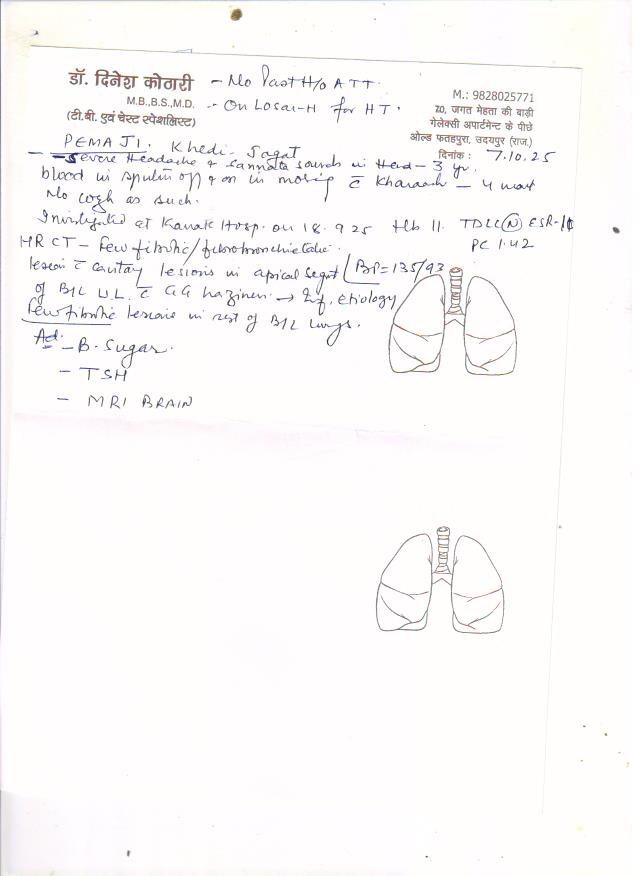 डॉ. दिनेश कोठारी - No Past H/o ATT.
M.B.,B.S.,M.D. - On Losar-H for HT.
(टी.बी. एवं चेस्ट स्पेशलिस्ट)
M.: 9828025771
70, जगत मेहता की बाड़ी
गेलेक्सी अपार्टमेन्ट के पीछे
ओल्ड फतहपुरा, उदयपुर (राज.)
दिनांक : 7.10.25
PEMA JI. Khedi-
- Severe Headache & sannata sounds in Head - 3 yr.
blood in sputum off & on in morning c̄ Kharash - 4
No cogh as such.
Investigated at Kanak Hosp. on 18.9.25 Hb 11. TDLC (N) ESR-
PC 1.42
HRCT - Few fibrotic/fibrobronchiectatic
lesion c̄ cavitary lesions in apical segmt BP=135/93
of B/L U.L. c̄ GG → Inf. etiology
Few fibrotic lesions in rest of B/L lungs.
Ad.
- B. Sugar.
- TSH
- MRI BRAIN